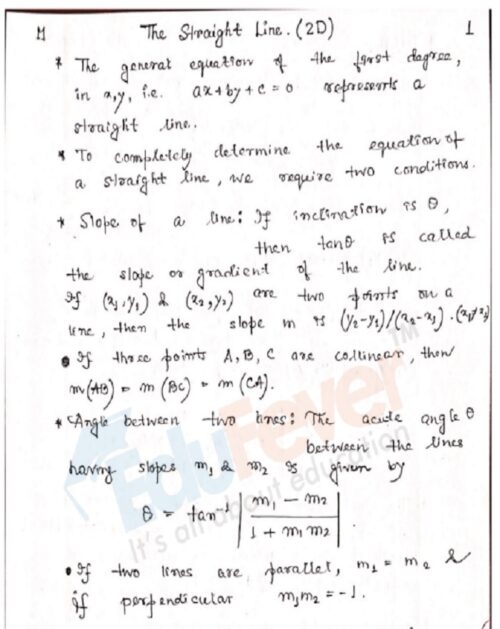 M The Straight Line. (2D) 1
* The general equation of the first degree,
in x,y, i.e. ax+by+c=0 represents a
straight line.
* To completely determine the equation of
a straight line, we require two conditions.
* Slope of a line: If inclination is θ,
then tanθ is called
the slope or gradient of the line.
If (x₁,y₁) & (x₂,y₂) are two points on a
line, then the slope m is (y₂-y₁)/(x₂-x₁). (x₁≠x₂)
• If three points A, B, C are collinear, then
m(AB) = m(BC) = m(CA).
* Angle between two lines: The acute angle θ
between the lines
having slopes m₁ & m₂ is given by
θ = tan⁻¹ | (m₁ - m₂) / (1 + m₁m₂) |.
• If two lines are parallel, m₁ = m₂ &
if perpendicular m₁m₂ = -1.
EduFever™
It's all about education